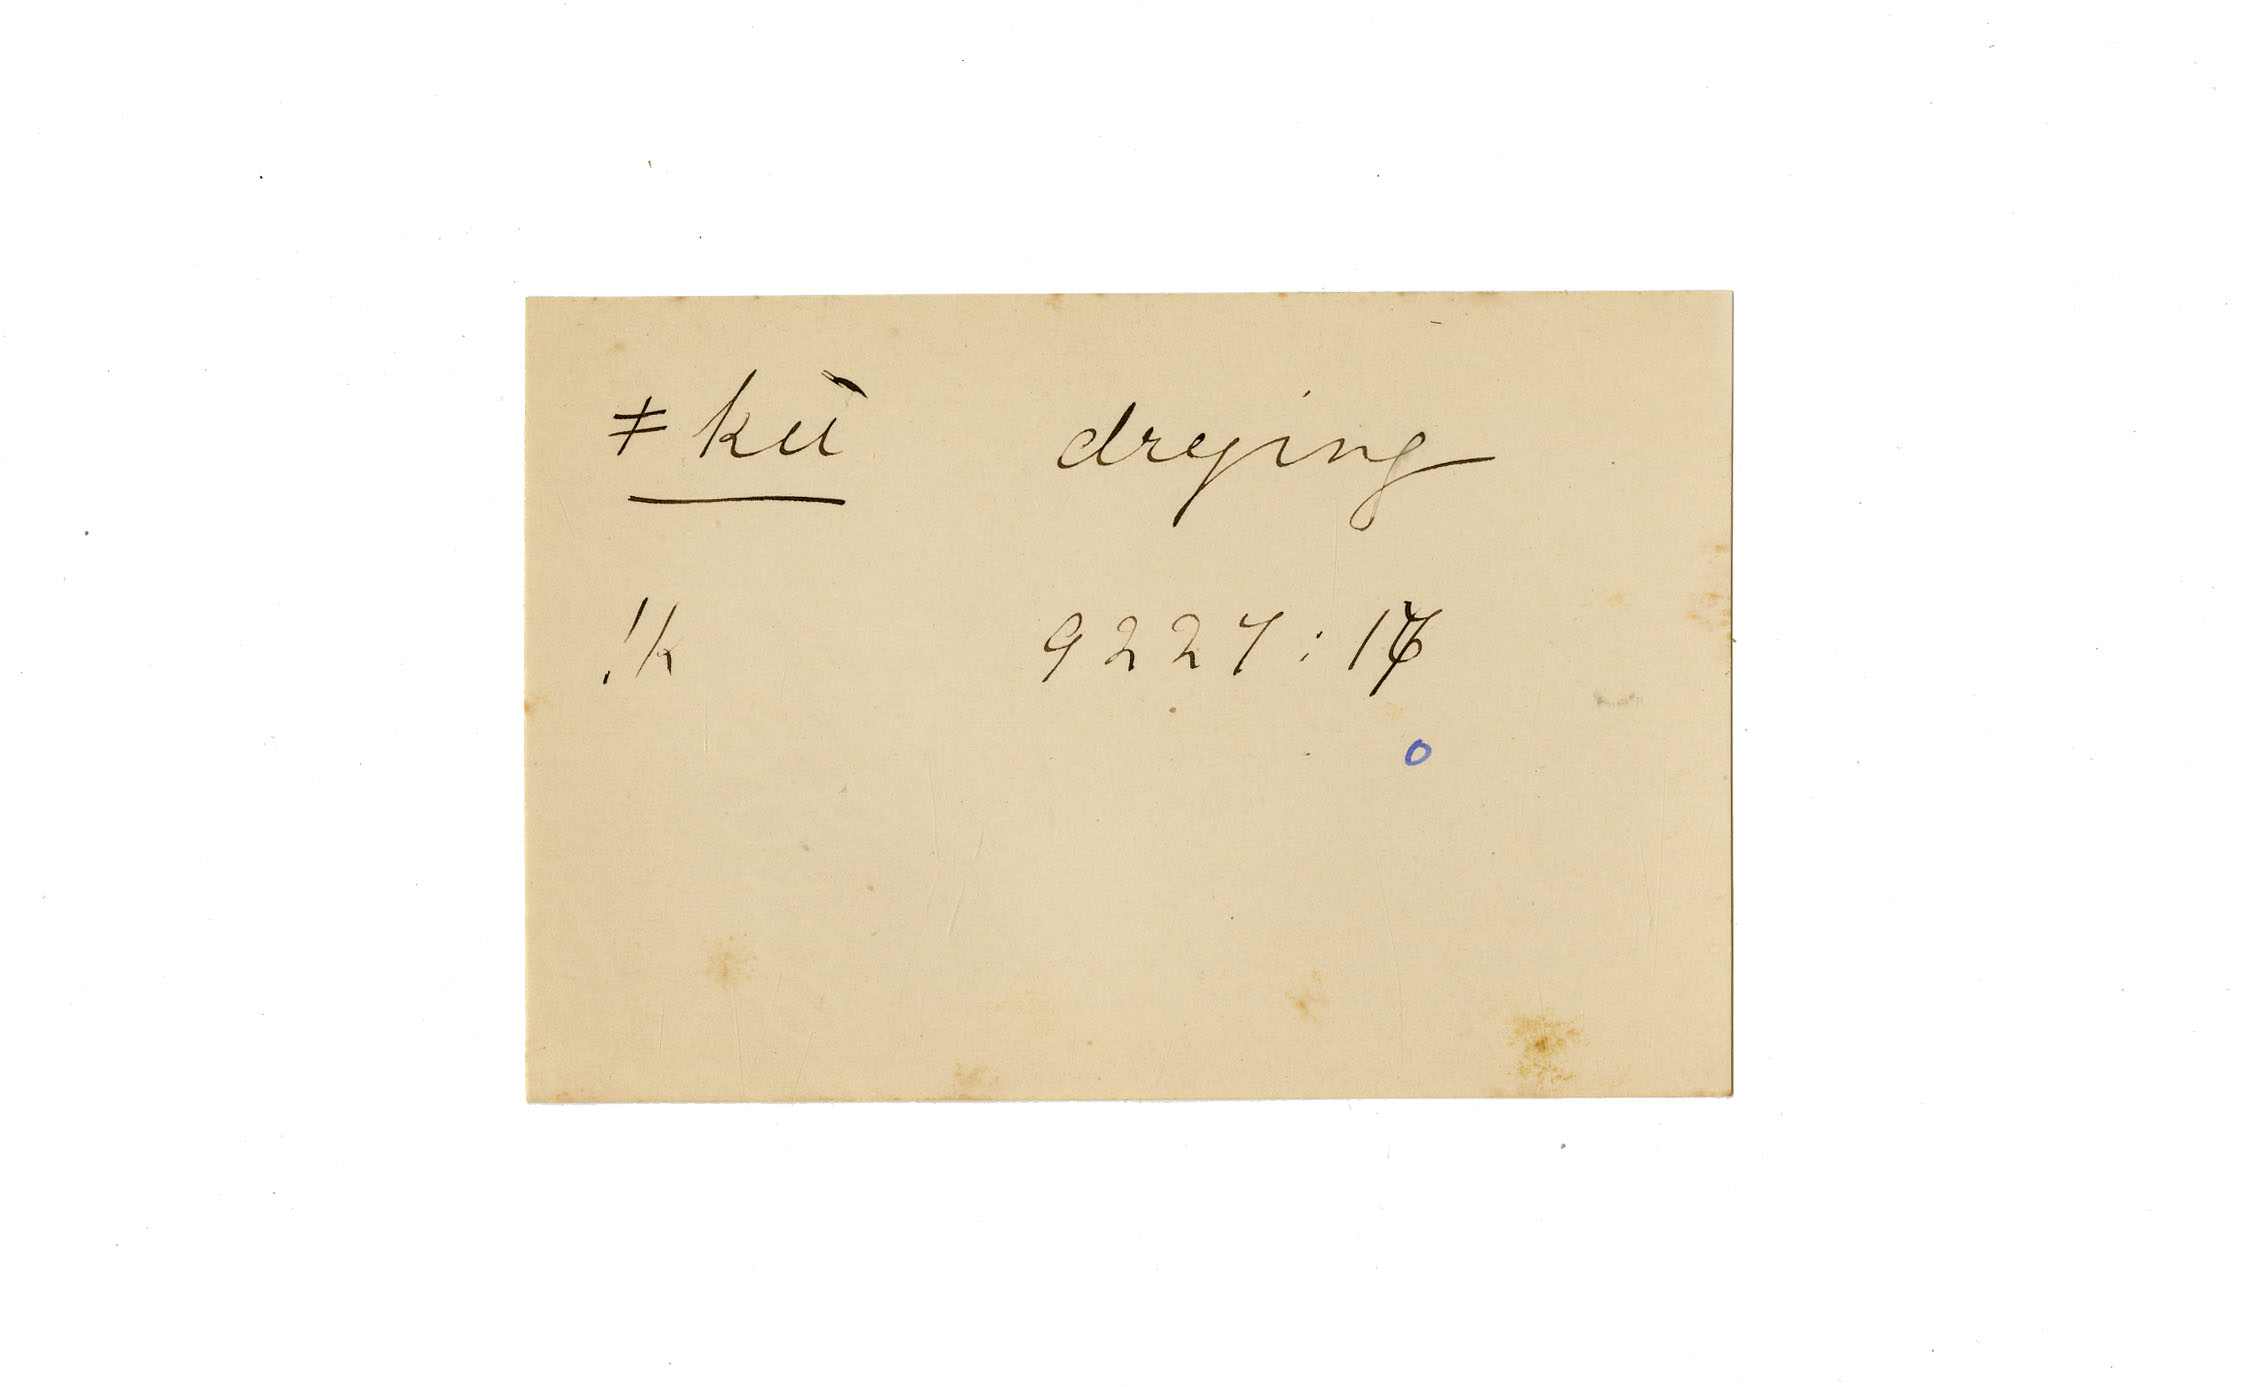 ǂkù drying
!k 9227:17
o